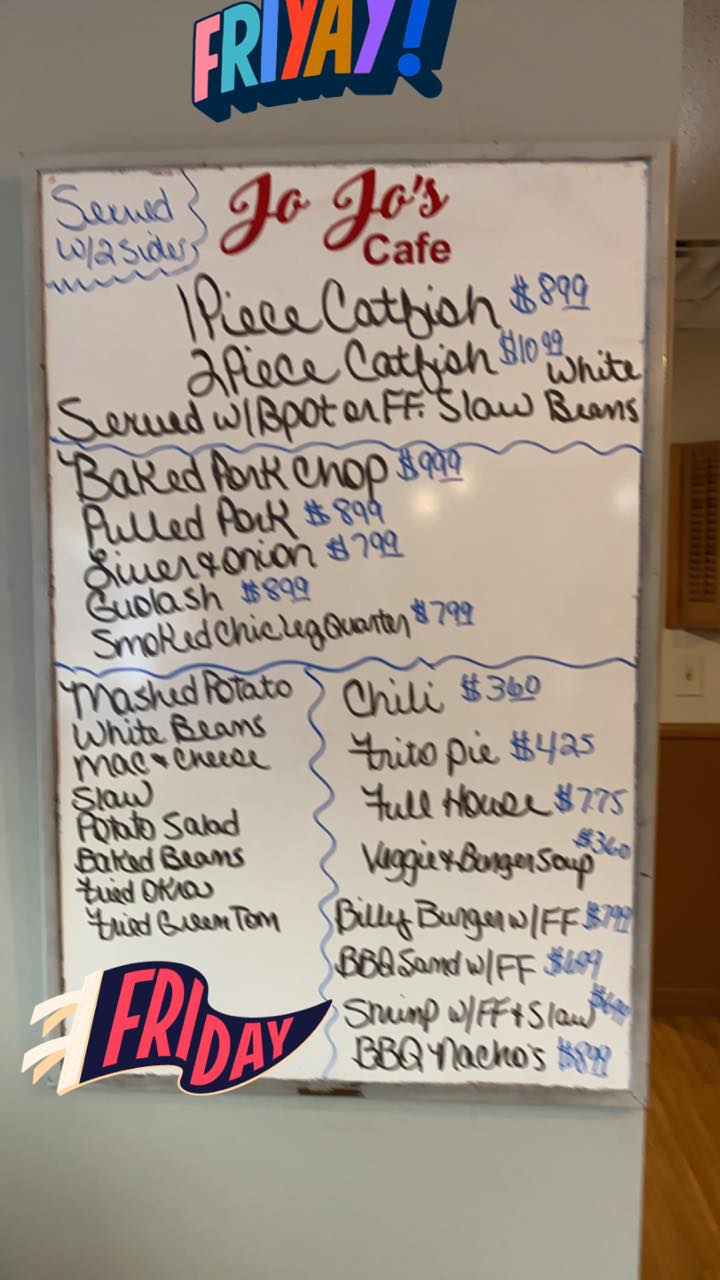 FRIYAY!
Served
w/2 sides
Jo Jo's
Cafe
1 Piece Catfish $8.99
2 Piece Catfish $10.99
Served w/Bpot or FF. Slaw White Beans
Baked Pork Chop $9.99
Pulled Pork $8.99
Liver & onion $7.99
Guolash $8.99
Smoked Chic Leg Quarter $7.99
Mashed Potato
White Beans
Mac & Cheese
Slaw
Potato Salad
Baked Beans
Fried Okra
Fried Green Tom
Chili $3.60
Frito pie $4.25
Full House $7.75
Veggie & Burger Soup $3.60
Billy Burger w/FF $7.99
BBQ Sand w/FF
Shrimp w/FF & Slaw
BBQ Nacho's $8.99
FRIDAY